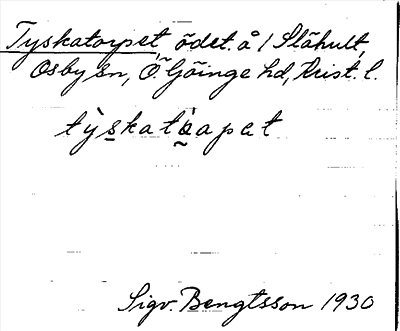 Tyskatorpet, ödet. å 1 Slähult,
Osby sn, Ö. Göinge hd, Krist. l.
tỳskatàapet
Sigv. Bengtsson 1930